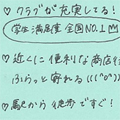 ♡ クラブが充実してる!
学生満足度 全国NO.1
♡ 近くに便利な商店街
ふらっと寄れる
♡ 駅から徒歩ですぐ!